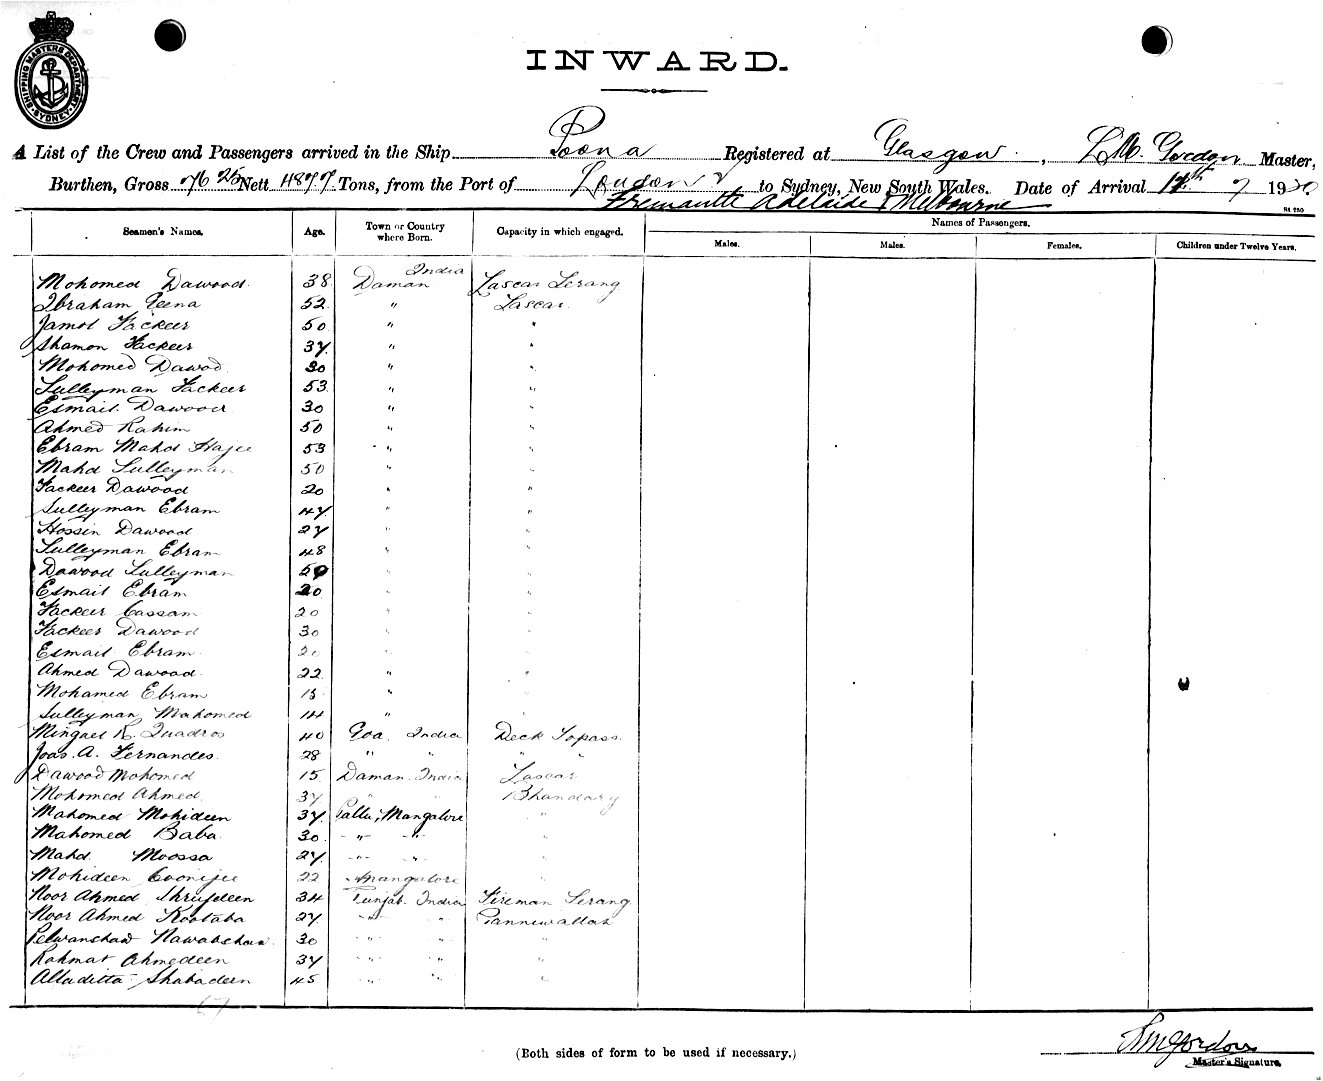 SHIPPING MASTERS DEPARTMENT SYDNEY
INWARD.
A List of the Crew and Passengers arrived in the Ship Poona Registered at Glasgow, L.M. Gordon Master,
Burthen, Gross 7626 Nett 4877 Tons, from the Port of London & to Sydney, New South Wales. Date of Arrival 17th 7 1920
Fremantle Adelaide & Melbourne
S1 250
Seamen's Names. Age. Town or Country where Born. Capacity in which engaged. Names of Passengers.
Males. Males. Females. Children under Twelve Years.
Mohomed Dawood 38 Daman India Lascar Serang
Ibraham Eeena 52 " Lascar
Jamol Fackeer 50 " "
Shamon Fackeer 37 " "
Mohomed Dawod 30 " "
Sulleyman Fackeer 53 " "
Esmail Dawood 30 " "
Ahmed Rahim 50 " "
Ebram Mahd Hajee 53 " "
Mahd Sulleyman 50 " "
Fackeer Dawood 20 " "
Sulleyman Ebram 47 " "
Hossin Dawood 27 " "
Sulleyman Ebram 48 " "
Dawood Sulleyman 50 " "
Esmail Ebram 20 " "
Fackeer Cassam 20 " "
Fackeer Dawood 30 " "
Esmail Ebram 20 " "
Ahmed Dawood 22 " "
Mohamed Ebram 15 " "
Sulleyman Mahomed 14 " "
Minguel R. Quadros 40 Goa India Deck Topass
Joao A. Fernandes 28 " " " "
Dawood Mohomed 15 Daman India Lascar
Mohomed Ahmed 37 " " Bhandary
Mahomed Mohideen 37 Pallu, Mangalore "
Mahomed Baba 30 " " "
Mahd Moossa 27 " " "
Mohideen Coonijee 22 Mangalore "
Noor Ahmed Shrufdeen 34 Punjab India Fireman Serang
Noor Ahmed Kootaba 27 " " Pannewallah
Pelwanshaw Nawabshaw 30 " " "
Rahmat Ahmedeen 37 " " "
Alladitta Shabadeen 45 " " "
(Both sides of form to be used if necessary.)
L M Gordon
Master's Signature.